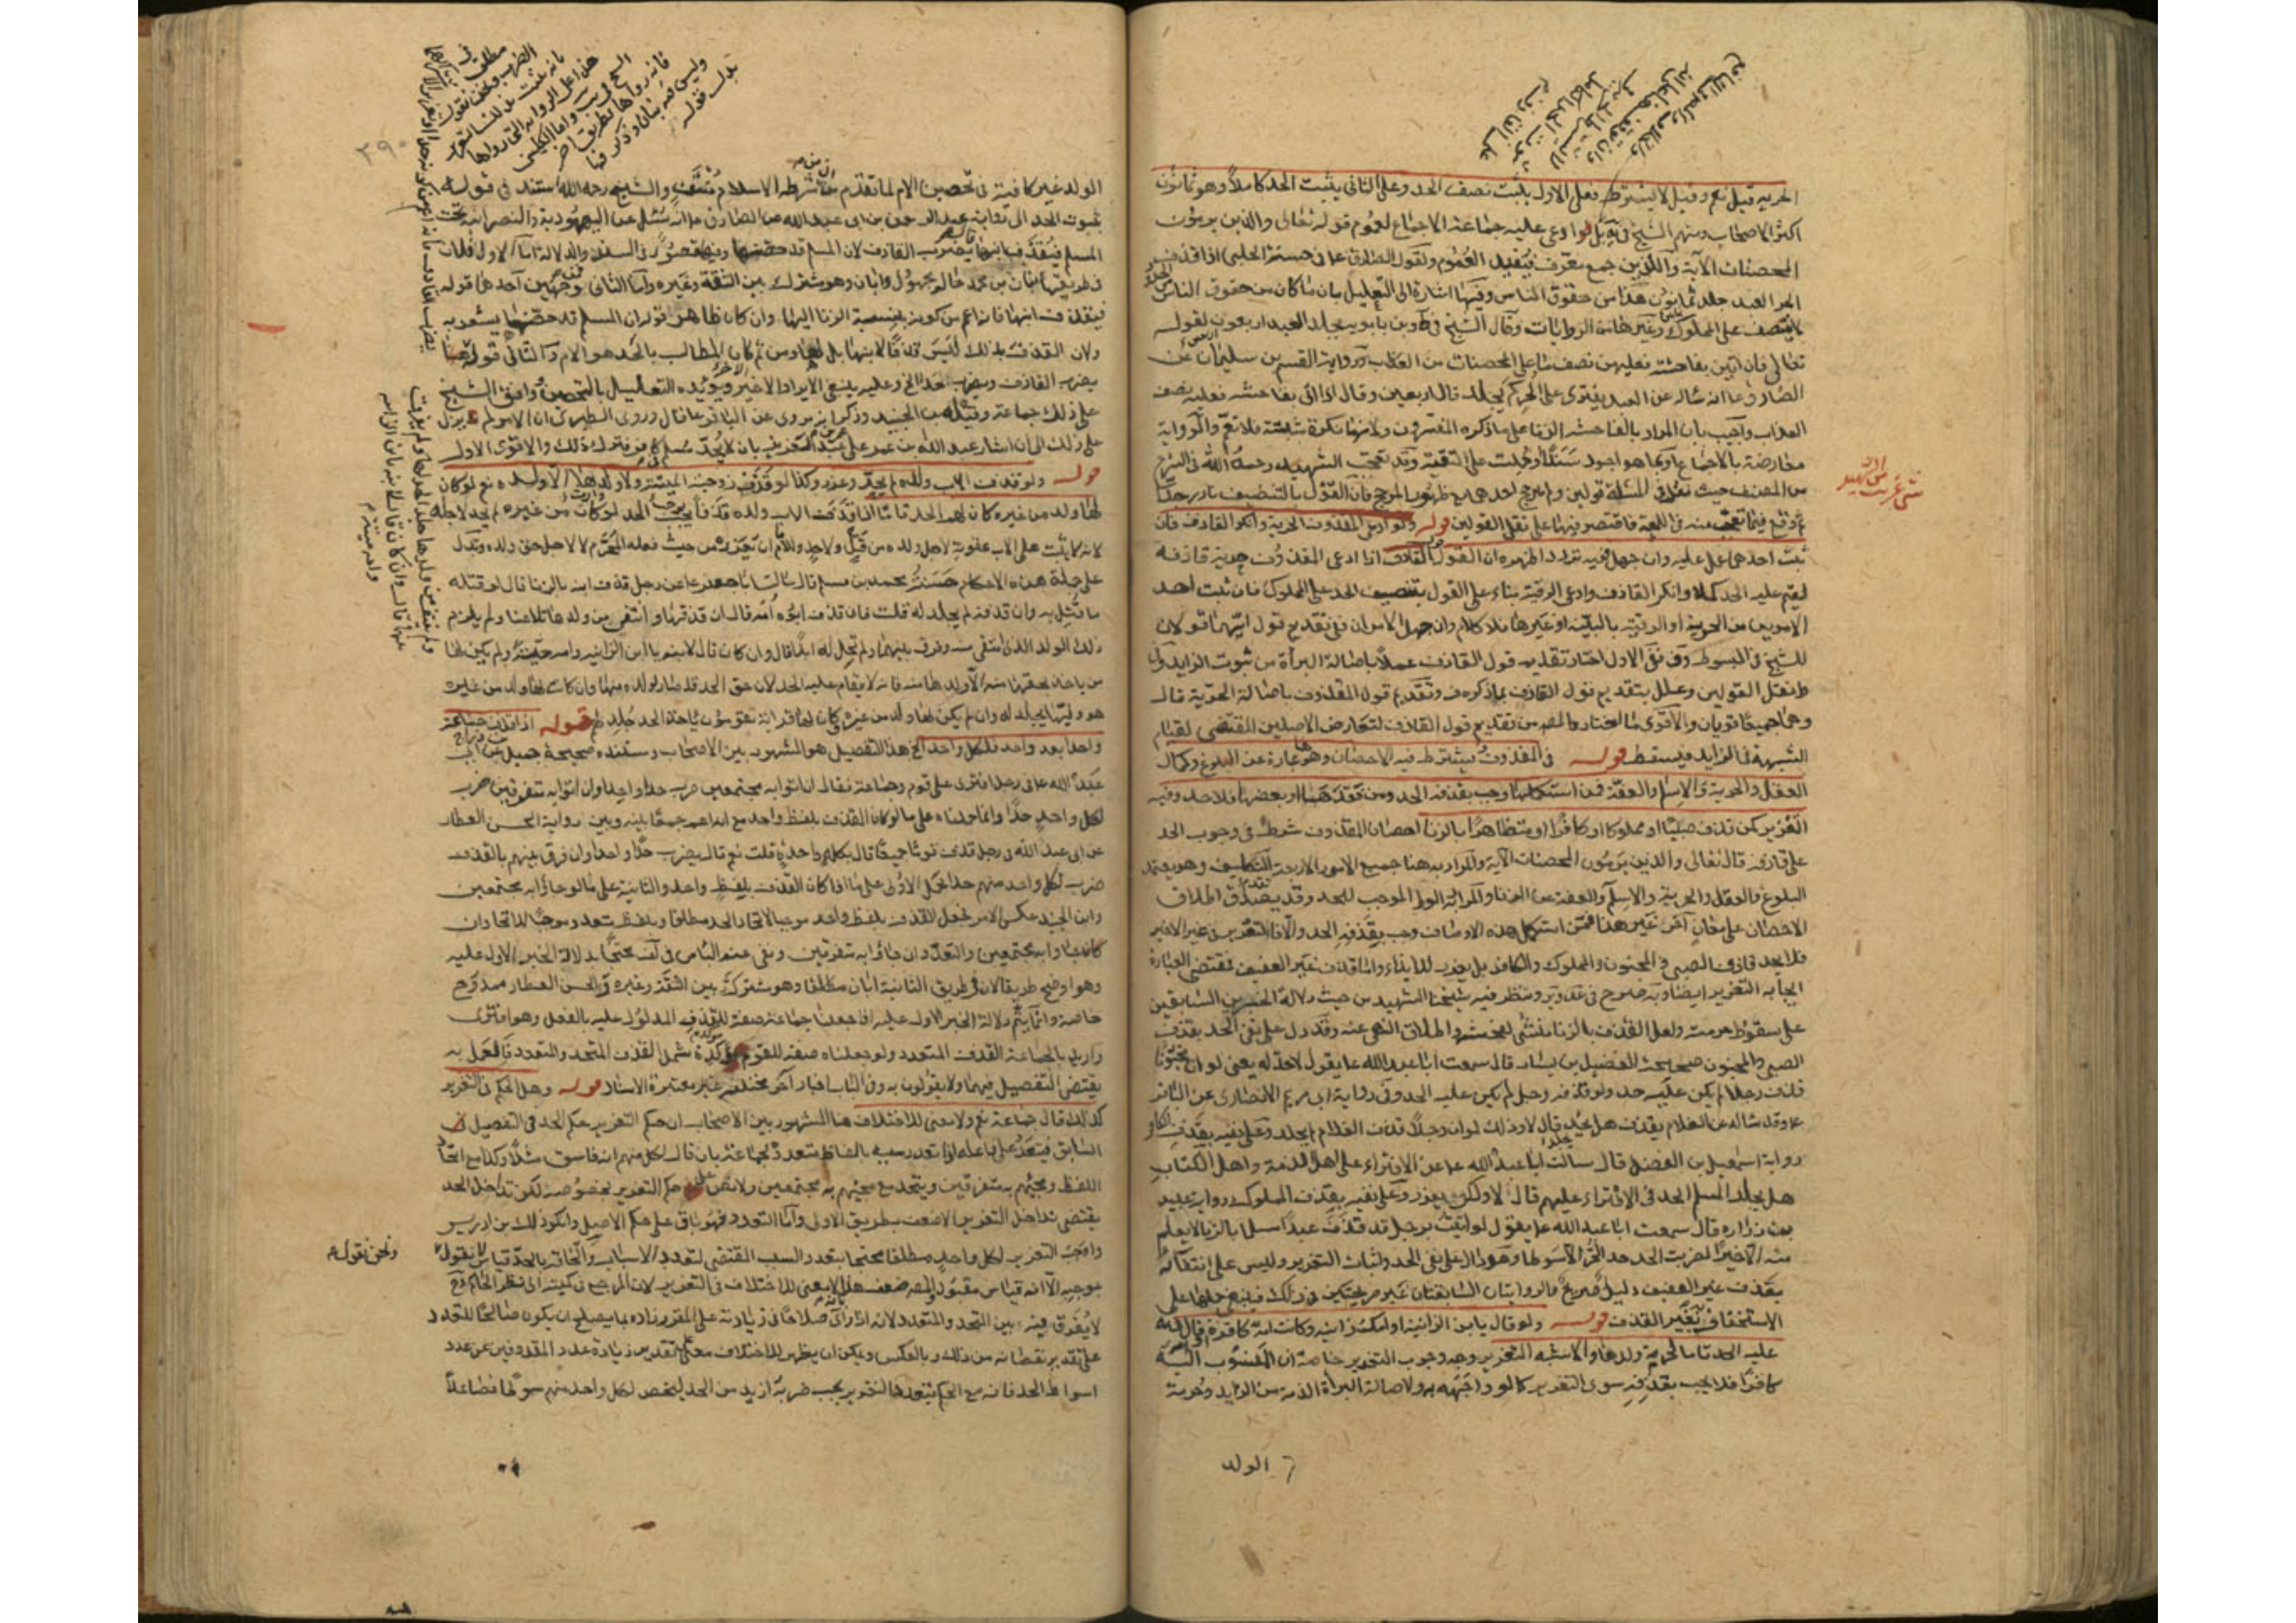 الحرية قيل نعم وقيل لا يشترط فعلى الاول يثبت نصف الحد وعلى الثاني يثبت الحد كاملا وهو ثمانون
اكثر الاصحاب ومنهم الشيخ في عليه جماعة الاجماع لعموم قوله تعالى والذين يرمون
المحصنات الآية والذين جمع معرف فيفيد العموم ولقول الصادق ع في حسنة الحلبي اذا قذف
الحر العبد جلد ثمانون هذا من حقوق الناس وفيها اشارة الى التعليل بان ما كان من حقوق الناس
لا ينتصف على المملوك وغيرهما من الروايات وقال الشيخ في ط وابن بابويه يجلد العبد اربعون لقوله
تعالى فان اتين بفاحشة فعليهن نصف ما على المحصنات من العذاب ورواية القسم بن سليمان عن
الصادق ع انه ساله عن العبد يفتري على الحر كم يجلد قال اربعين وقال اذا اتى بفاحشة فعليه نصف
العذاب واجيب بان المراد بالفاحشة الزنا على ما ذكره المفسرون ولانها نكرة مثبتة فلا تعم والرواية
معارضة بالاجماع او بما هو اجود سندا او حملت على التقية وقد تعجب الشهيد رحمه الله في الشرح
من المصنف حيث نقل في المسئلة قولين ولم يرجح احدهما مع ظهور المرجح فان القول بالتنصيف نادر جدا
ثم وقع فيما تعجب منه في اللمعة فاقتصر فيها على نقل القولين قوله ولو ادعى المقذوف الحرية وانكر القاذف فان
ثبت احدهما عمل عليه وان جهل ففيه تردد اظهره ان القول قول القاذف اذا ادعى المقذوف حرية قاذفه
ليقم عليه الحد كملا وانكر القاذف وادعى الرقية بناء على القول بتنصيف الحد على المملوك فان ثبت احد
الامرين من الحرية او الرقية بالبينة او غيرها فلا كلام وان جهل الامران ففي تقديم قول ايهما قولان
للشيخ في المبسوط وف ففي الاول اختار تقديم قول القاذف عملا باصالة البرأة من ثبوت الزايد
ط نقل القولين وعلل تقديم قول القاذف بما ذكره في وتقديم قول المقذوف باصالة الحرية قال
وهما جميعا قويان والاقوى ما اختاره المص من تقديم قول القاذف لتعارض الاصلين المقتضي لقيام
الشبهة في الزايد فيسقط قوله في المقذوف ويشترط فيه الاحصان وهو هنا عبارة عن البلوغ وكمال
العقل والحرية والاسلام والعفة فمن استكملها وجب بقذفه الحد ومن فقدها او بعضها فلا حد وفيه
التعزير كمن قذف صبيا او مملوكا او كافرا او متظاهرا بالزنا احصان المقذوف شرط في وجوب الحد
على قاذفه قال تعالى والذين يرمون المحصنات الآية والمراد به هنا جميع الامور الاربعة التكليف وهو يعتمد
البلوغ والعقل والحرية والاسلام والعفة عن الزنا والمراد به الوطء الموجب للحد وقد تقدم اطلاق
الاحصان على معان اخر غير هذا فمن استكمل هذه الاوصاف وجب بقذفه الحد والا فالتعزير في غير الاخير
فلا يحد قاذف الصبي والمجنون والمملوك والكافر بل يعزر للايذاء واما قذف غير العفيف فمقتضى العبارة
ايجابه التعزير ايضا وبه صرح في عد وير ونظر فيه شيخنا الشهيد من حيث دلالة الخبرين السابقين
على سقوط حرمته ولعل القذف بالزنا مستثنى لفحشه واطلاق النهي عنه وقد دل على نفي الحد بقذف
الصبي والمجنون صحيحة الفضيل بن يسار قال سمعت ابا عبد الله ع يقول لا حد له يعني لو ان مجنونا
قذف رجلا لم يكن عليه حد ولو قذفه رجل لم يكن عليه الحد وفي رواية ابي مريم الانصاري عن الباقر
ع وقد ساله عن الغلام يقذف هل يجلد قال لا وذلك لو ان رجلا قذف الغلام لم يجلد وعلى نفيه بقذف الكافر
رواية اسمعيل بن الفضل قال سالت ابا عبد الله ع عن الافتراء على اهل الذمة واهل الكتاب
هل يجلد المسلم الحد في الافتراء عليهم قال لا ولكن يعزر وعلى نفيه بقذف المملوك رواية عبيد
بن زرارة قال سمعت ابا عبد الله ع يقول لو اتيت برجل قد قذف عبدا مسلما بالزنا لا يعلم
منه الا خيرا لضربته الحد حد الحر الا سوطا وهو دال على نفي الحد واثبات التعزير وليس على انتفائه
بقذف غير العفيف دليل صريح والروايتان السابقتان غير صريحتين في ذلك فينبغي حملها على
الاستخفاف بغير القذف قوله ولو قال يا بن الزانية او امك زانية وكانت امه كافرة قال في يه
عليه الحد تاما لحرمة ولدها والاشبه التعزير وجه وجوب التعزير خاصة ان المنسوب اليه
كافرا فلا يجب بقذفه سوى التعزير كما لو واجهه به ولاصالة البرأة الذمة من الزايد وحرمة
الولد
الولد غير كافية في تحصين الام لما تقدم من ان شرطه الاسلام والشيخ رحمه الله استند في قوله
بثبوت الحد الى رواية عبد الرحمن بن ابي عبد الله عن الصادق ع انه سئل عن اليهودية والنصرانية تحت
المسلم فيقذف ابنها قال يضرب القاذف لان المسلم قد حصنها وفيها قصور في السند والدلالة اما الاول فلان
في طريقها بنان بن محمد حاله مجهول وابان وهو مشترك بين الثقة وغيره واما الثاني فمن وجهين احدهما قوله
فيقذف ابنها فانه اعم من كونه بنسبة الزنا اليها وان كان ظاهر قوله ان المسلم قد حصنها يشعر به
ولان القذف بذلك ليس قذفا لابنها بل لها ومن ثم كان المطالب بالحد هو الام والثاني قوله
يضرب القاذف ويضرب حدا الخ وعليه ينبغي الايراد الاخير ويؤيده التعليل بالتحصين ووافق الشيخ
على ذلك جماعة وقبله ابن الجنيد وذكر انه مروي عن الباقر ع قال وروى الطبري ان الامر لم يزل
على ذلك الى ان اشار عبد الله بن عمر على عمر بن عبد العزيز بان لا يحد مسلم في كافر فترك ذلك والاقوى الاول
قوله ولو قذف الاب ولده لم يحد وعزر وكذا لو قذف زوجته الميتة ولا وارث لها الا ولده نعم لو كان
لها ولد من غيره كان لهم الحد تاما اذا قذف الاب ولده قذفا يوجب الحد لو كان من غيره لم يحد لاجله
لانه لا يثبت على الاب عقوبة لاجل ولده من قتل ولا حد والاثم ان تعزيره من حيث فعله المحرم لا لاجل حق ولده وتدل
على جملة هذه الاحكام حسنة محمد بن مسلم قال سالت ابا جعفر ع عن رجل قذف ابنه بالزنا قال لو قتله
ما قتل به وان قذفه لم يجلد له قلت فان قذف ابوه امه قال ان قذفها وانتفى من ولدها تلاعنا ولم يلزم
ذلك الولد الذي انتفى منه وفرق بينهما ولم تحل له ابدا قال وان كان قال لابنه يا ابن الزانية وامه حية ولم يكن لها
من ياخذ بحقها منه الا ولدها منه فانه لا يقام عليه الحد لان حق الحد قد صار لولده منها وان كان لها ولد من غيره
هو وليها يجلد له وان لم يكن لها ولد من غيره وكان لها قرابة يقومون باخذ الحد جلد لهم قوله اذا قذف جماعة
واحدا بعد واحد فلكل واحد الخ هذا التفصيل هو المشهور بين الاصحاب ومستنده صحيحة جميل عن ابي
عبد الله ع في رجل افترى على قوم جماعة فقال ان اتوا به مجتمعين ضرب حدا واحدا وان اتوا به متفرقين ضرب
لكل واحد حدا وانما حملناه على ما لو كان القذف بلفظ واحد مع انه اعم جمعا بينه وبين رواية الحسن العطار
عن ابي عبد الله في رجل قذف قوما جميعا قال بكلمة واحدة قلت نعم قال يضرب حدا واحدا وان فرق بينهم بالقذف
ضرب لكل واحد منهم حدا بحمل الاولى على ما اذا كان القذف بلفظ واحد والثانية على ما لو جاؤا به مجتمعين
وابن الجنيد عكس الامر فجعل القذف بلفظ واحد موجبا لاتحاد الحد مطلقا وبلفظ متعدد موجبا للاتحاد ان
جاؤا به مجتمعين والتعدد ان جاؤا به متفرقين ونفى عنه الباس في لف محتجا بدلالة الخبر الاول عليه
وهو اوضح طريقا لان في طريق الثانية ابان مطلقا وهو مشترك بين الثقة وغيره والحسن العطار ممدوح
خاصة وانما يتم دلالة الخبر الاول عليه اذا جعلنا جماعة صفة للقذف المدلول عليه بالفعل وهو افترى
واريد بالجماعة القذف المتعدد ولو جعلناه صفة للقوم مؤكدة شمل القذف المتحد والمتعدد فالعمل به
يقتضي التفصيل فيهما ولا يقولون به وفي الباب اخبار اخر مختلفة غير معتبرة الاسناد قوله وهل الحكم في التعزير
كذلك قال جماعة نعم ولا معنى للاختلاف هنا المشهور بين الاصحاب ان حكم التعزير حكم الحد في التفصيل
السابق فيتعدد على فاعله اذا تعدد سببه بالفاظ متعددة لجماعة بان قال لكل منهم انه فاسق مثلا وكذا مع اتحاد
اللفظ ومجيئهم به متفرقين ويتحد مع مجيئهم به مجتمعين ولا نص على حكم التعزير بخصوصه لكن تداخل الحد
يقتضي تداخل التعزير الاضعف بطريق الاولى واما التعدد فهو باق على حكم الاصل وانكر ذلك بن ادريس
واوجب التعزير لكل واحد مطلقا محتجا بتعدد السبب المقتضي لتعدد الاسباب والحاقه بالحد قياس لا نقول
بموجبه الا انه قياس مقبول والمص ضعف هنا لا معنى للاختلاف في التعزير لان المرجع في كميته الى نظر الحاكم
لا يفرق فيه بين المتحد والمتعدد لانه اذا راى صلاحا في زيادته على المقرر زاده بما يصلح ان يكون صالحا للتعدد
على تقدير نقصانه من ذلك وبالعكس ويمكن ان يظهر للاختلاف معنى على تقدير زيادة عدد المقذوفين عن عدد
اسواط الحد فانه مع الحكم بتعدد التعزير يجب ضربه ازيد من الحد ليخص لكل واحد منهم سوطا فصاعدا
ونحن نقول به